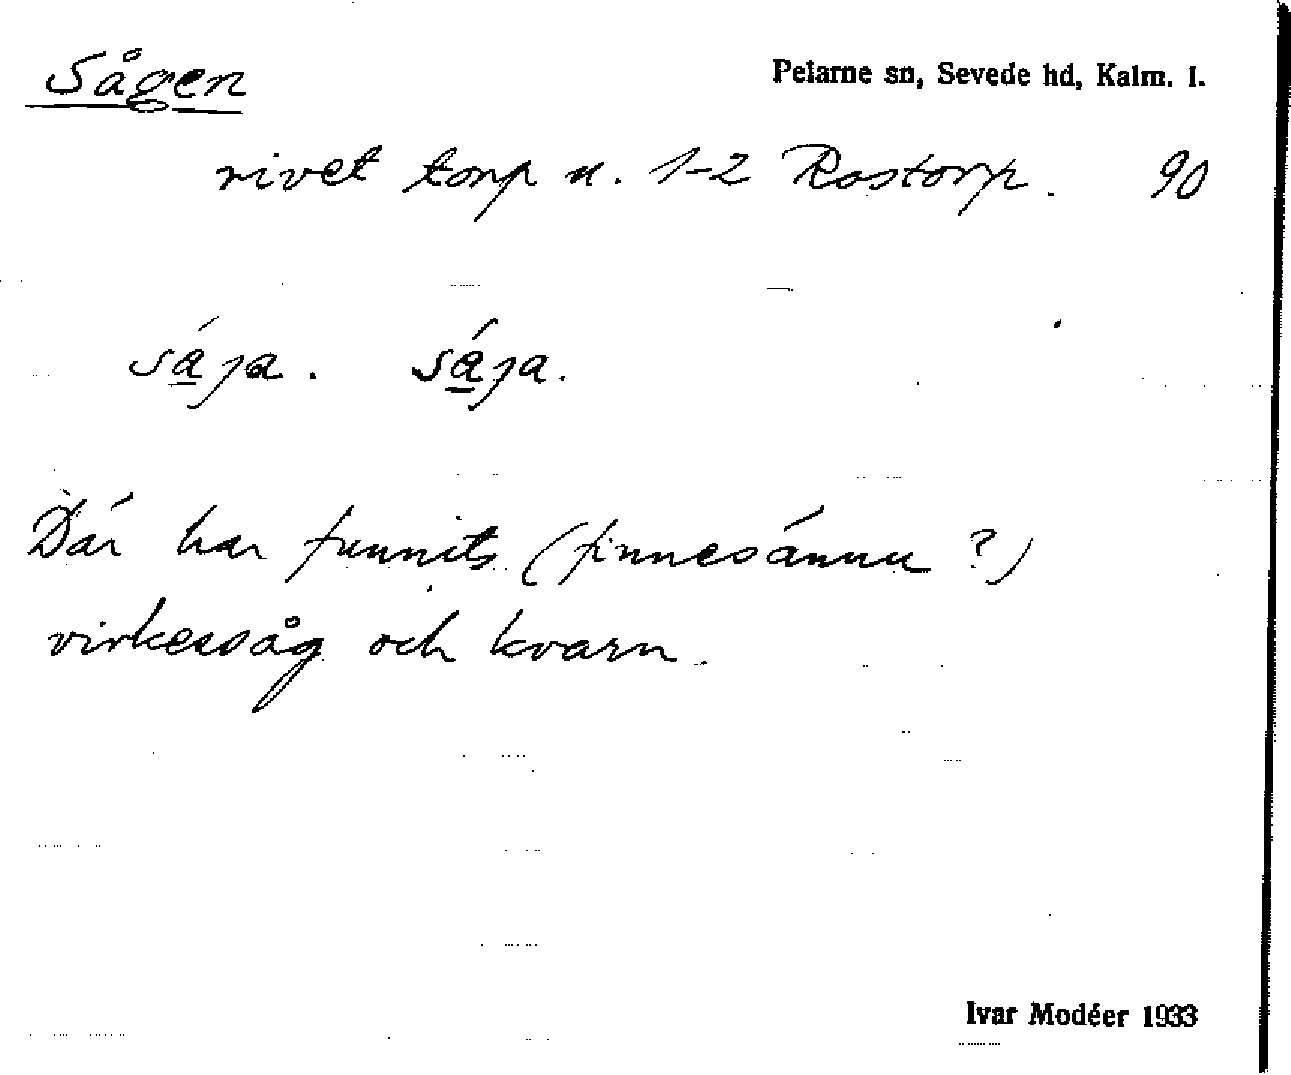 Sågen
Pelarne sn, Sevede hd, Kalm. l.
rivet torp u. 1-2 Rostorp. 90
sája. sája.
Där har funnits (finnes ännu?)
virkessåg och kvarn.
Ivar Modéer 1933